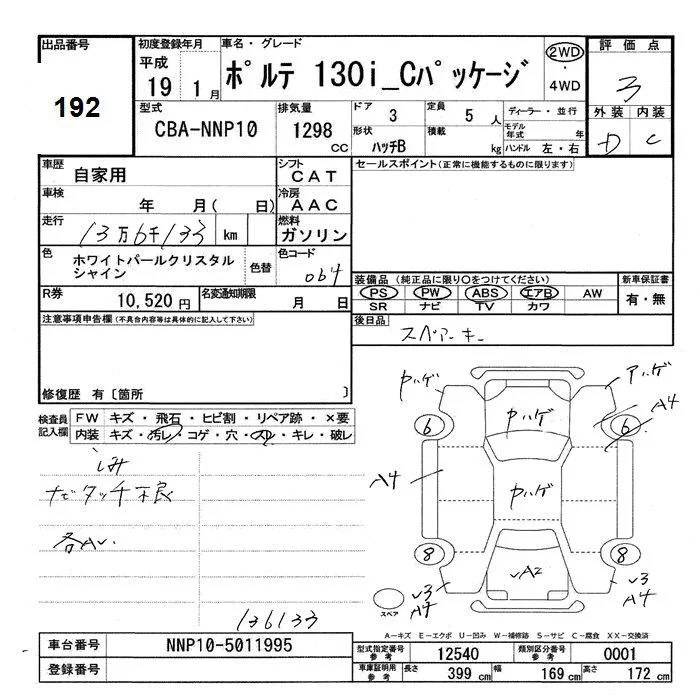 出品番号
192
初度登録年月
平成
19 1月
車名・グレード
ポルテ 130i_Cパッケージ
2WD
・
4WD
評価点
3
外装 内装
D C
型式
CBA-NNP10
排気量
1298
cc
ドア
3
定員
5 人
ディーラー・並行
形状
ハッチB
積載
kg
モデル年式 年
ハンドル 左・右
車歴
自家用
シフト
CAT
セールスポイント(正常に機能するものに限ります)
車検
年 月( 日)
冷房
AAC
走行
13万6千133 km
燃料
ガソリン
色
ホワイトパールクリスタル
シャイン
色替
色コード
064
装備品 (純正品に限り○をつけてください)
新車保証書
PS PW ABS エアB AW
SR ナビ TV カワ
有・無
R券
10,520 円
名変通知期限
月 日
後日品
スペアーキー
注意事項申告欄(不具合内容等は具体的に記入して下さい)
修復歴 有〔箇所 〕
検査員
記入欄
FW キズ・飛石・ヒビ割・リペア跡・×要
内装 キズ・汚レ・コゲ・穴・スレ・キレ・破レ
しみ
ナビタッチ不良
各AU.
136133
中ハゲ
中ハゲ
アハゲ
A4
6
6
A4
中ハゲ
8
8
√A2
√3
A4
√3
A4
スペア
A-キズ E-エクボ U-凹み W-補修跡 S-サビ C-腐食 XX-交換済
車台番号
NNP10-5011995
登録番号
型式指定番号
参考
12540
類別区分番号
参考
0001
車庫証明用
参考
長さ
399 cm
幅
169 cm
高さ
172 cm